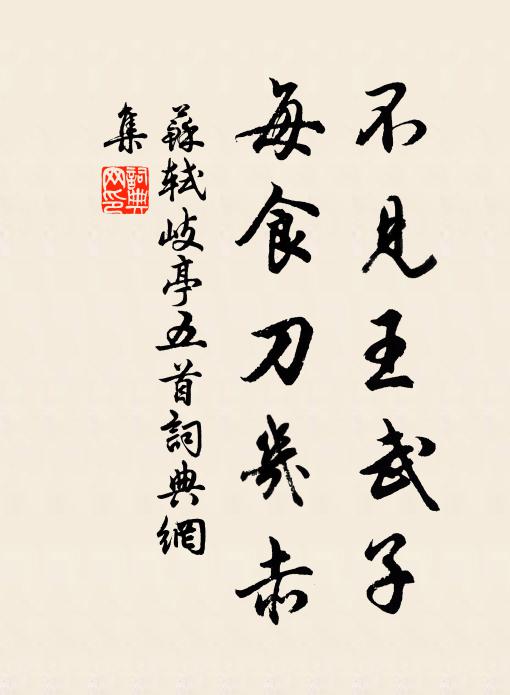 不見王武子
每食刀幾赤
蘇軾岐亭五首詞典網
集
詞典網印